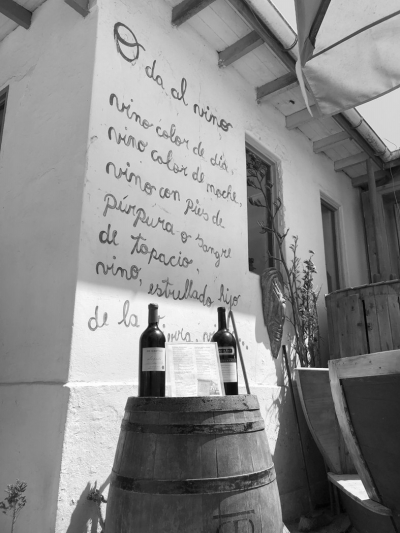 Oda al vino
vino color de día,
vino color de noche,
vino con pies de
púrpura o sangre
de topacio,
vino, estrellado hijo
de la